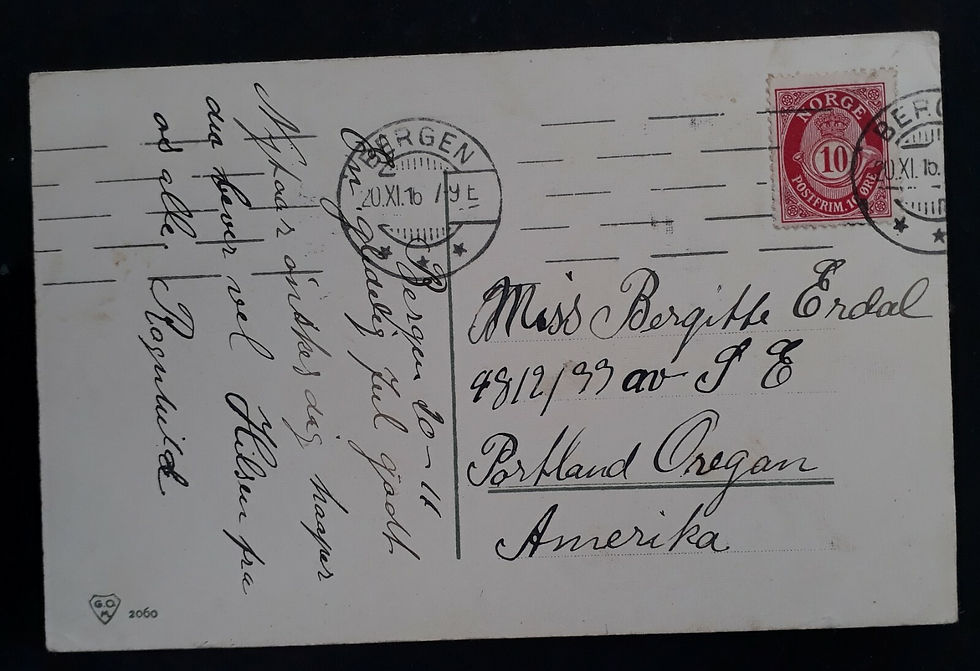 Bergen 20-11
En glædelig Jul godt
Nytaar önskes dig haaper
du lever vel Hilsen fra
os alle. Ragnhild
BERGEN
20.XI.16
NORGE
10
POSTFRIM. 10 ØRE
BERG
20.XI.16
Miss Bergitte Erdal
48 12/99 av S E
Portland Oregon
Amerika
G.O.
K
2060